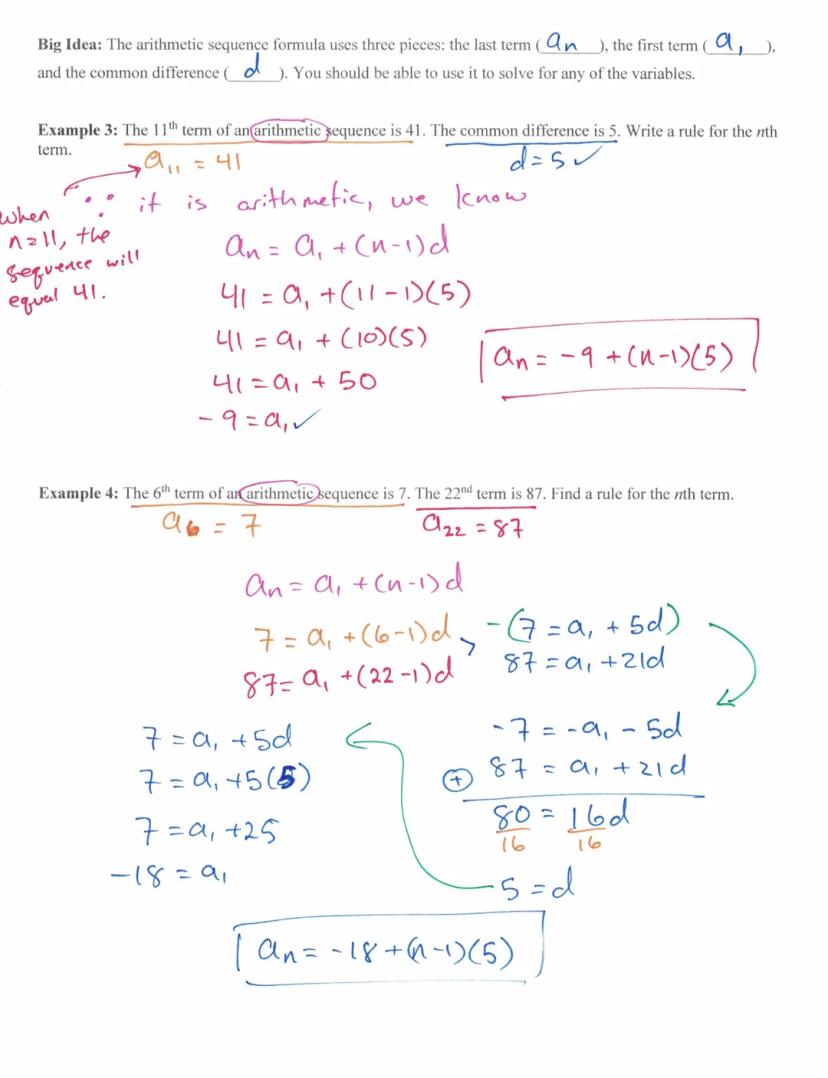 Big Idea: The arithmetic sequence formula uses three pieces: the last term ( an ), the first term ( a₁ ),
and the common difference ( d ). You should be able to use it to solve for any of the variables.
Example 3: The 11th term of an arithmetic sequence is 41. The common difference is 5. Write a rule for the nth
term.
a₁₁ = 41
d = 5 ✓
When
n=11, the
sequence will
equal 41.
∵ it is arithmetic, we know
an = a₁ + (n-1)d
41 = a₁ + (11-1)(5)
41 = a₁ + (10)(5)
41 = a₁ + 50
-9 = a₁ ✓
an = -9 + (n-1)(5)
Example 4: The 6th term of an arithmetic sequence is 7. The 22nd term is 87. Find a rule for the nth term.
a₆ = 7
a₂₂ = 87
an = a₁ + (n-1)d
7 = a₁ + (6-1)d
87 = a₁ + (22-1)d
-(7 = a₁ + 5d)
87 = a₁ + 21d
-7 = -a₁ - 5d
+ 87 = a₁ + 21d
80 = 16d
16 16
5 = d
7 = a₁ + 5d
7 = a₁ + 5(5)
7 = a₁ + 25
-18 = a₁
an = -18 + (n-1)(5)